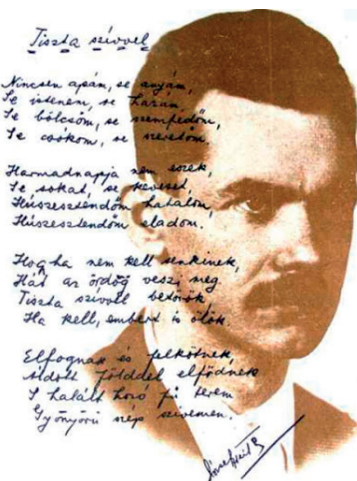 Tiszta szívvel
Nincsen apám, se anyám,
Se istenem, se hazám,
Se bölcsőm, se szemfedőm,
Se csókom, se szeretőm.
Harmadnapja nem eszek,
Se sokat, se keveset,
Húszesztendőm hatalom,
Húszesztendőm eladom.
Hogyha nem kell senkinek,
Hát az ördög veszi meg.
Tiszta szívvel betörök,
Ha kell, embert is ölök.
Elfognak és felkötnek,
áldott földdel elfödnek
S halált hozó fű terem
Gyönyörű szép szívemen.
József Attila